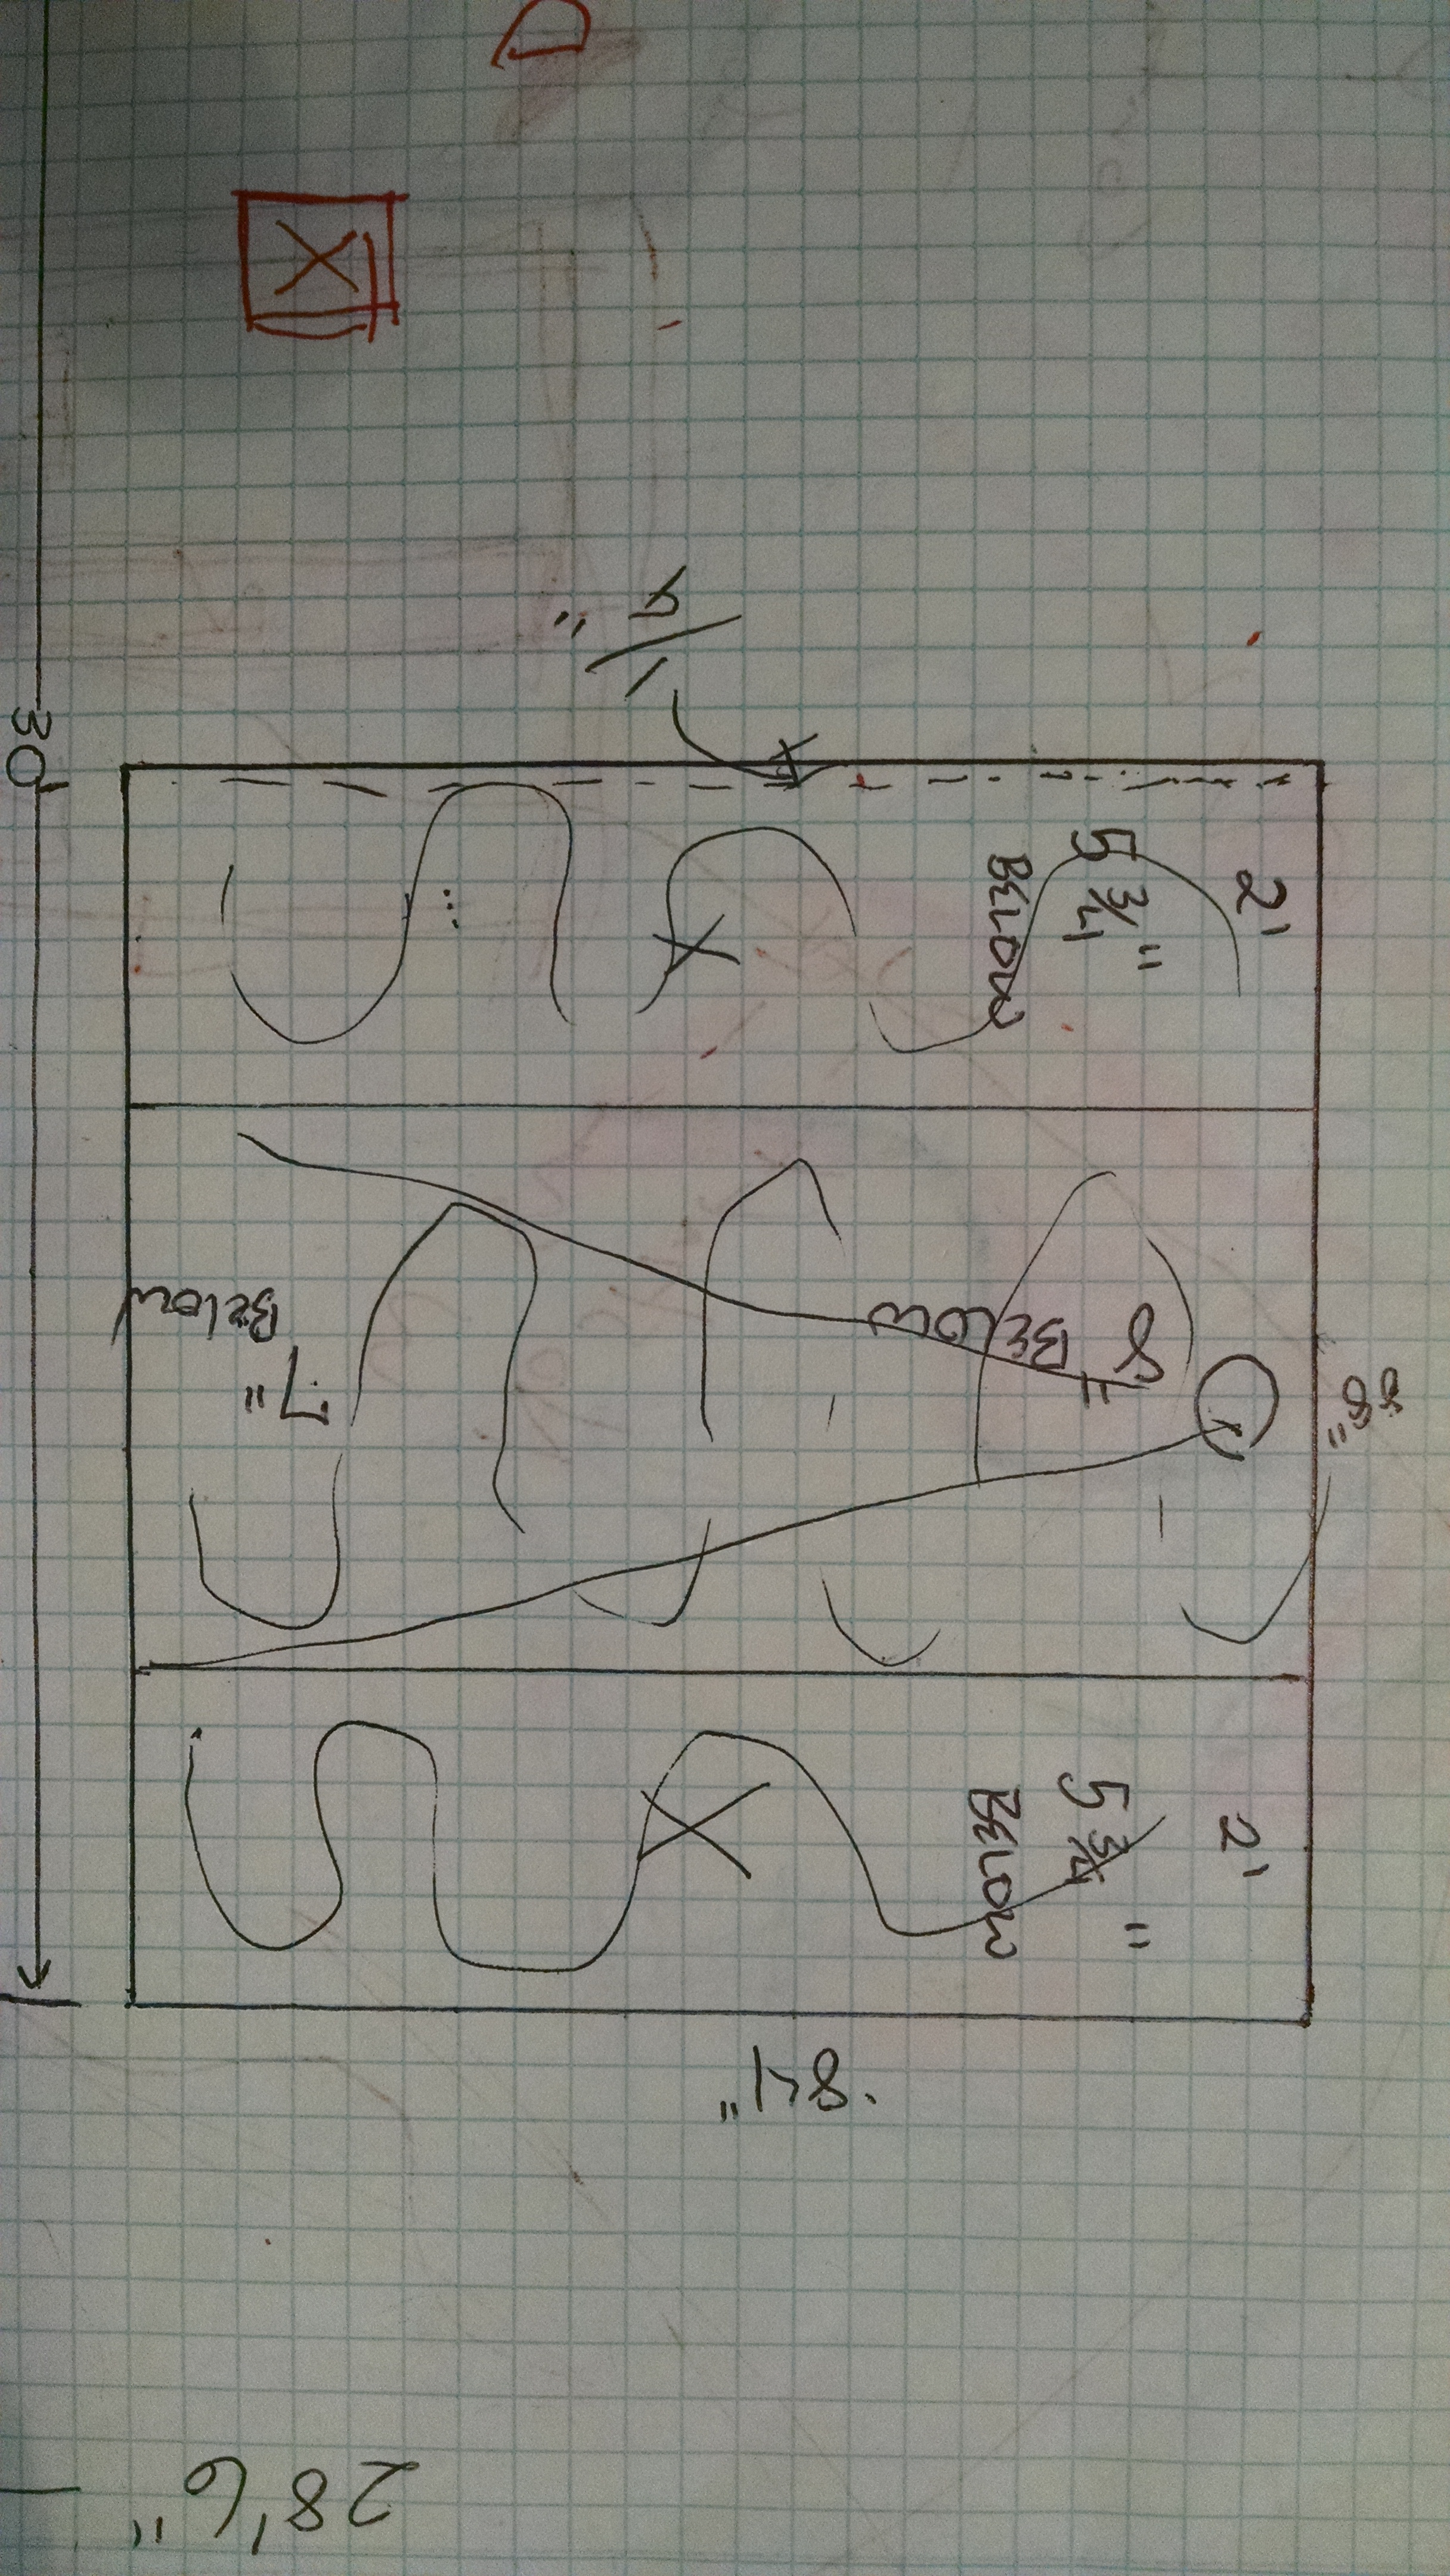 1/4"
30'
2'
5 3/4"
BELOW
8"
BELOW
7"
Below
88"
2'
5 3/4"
BELOW
84"
28'6"